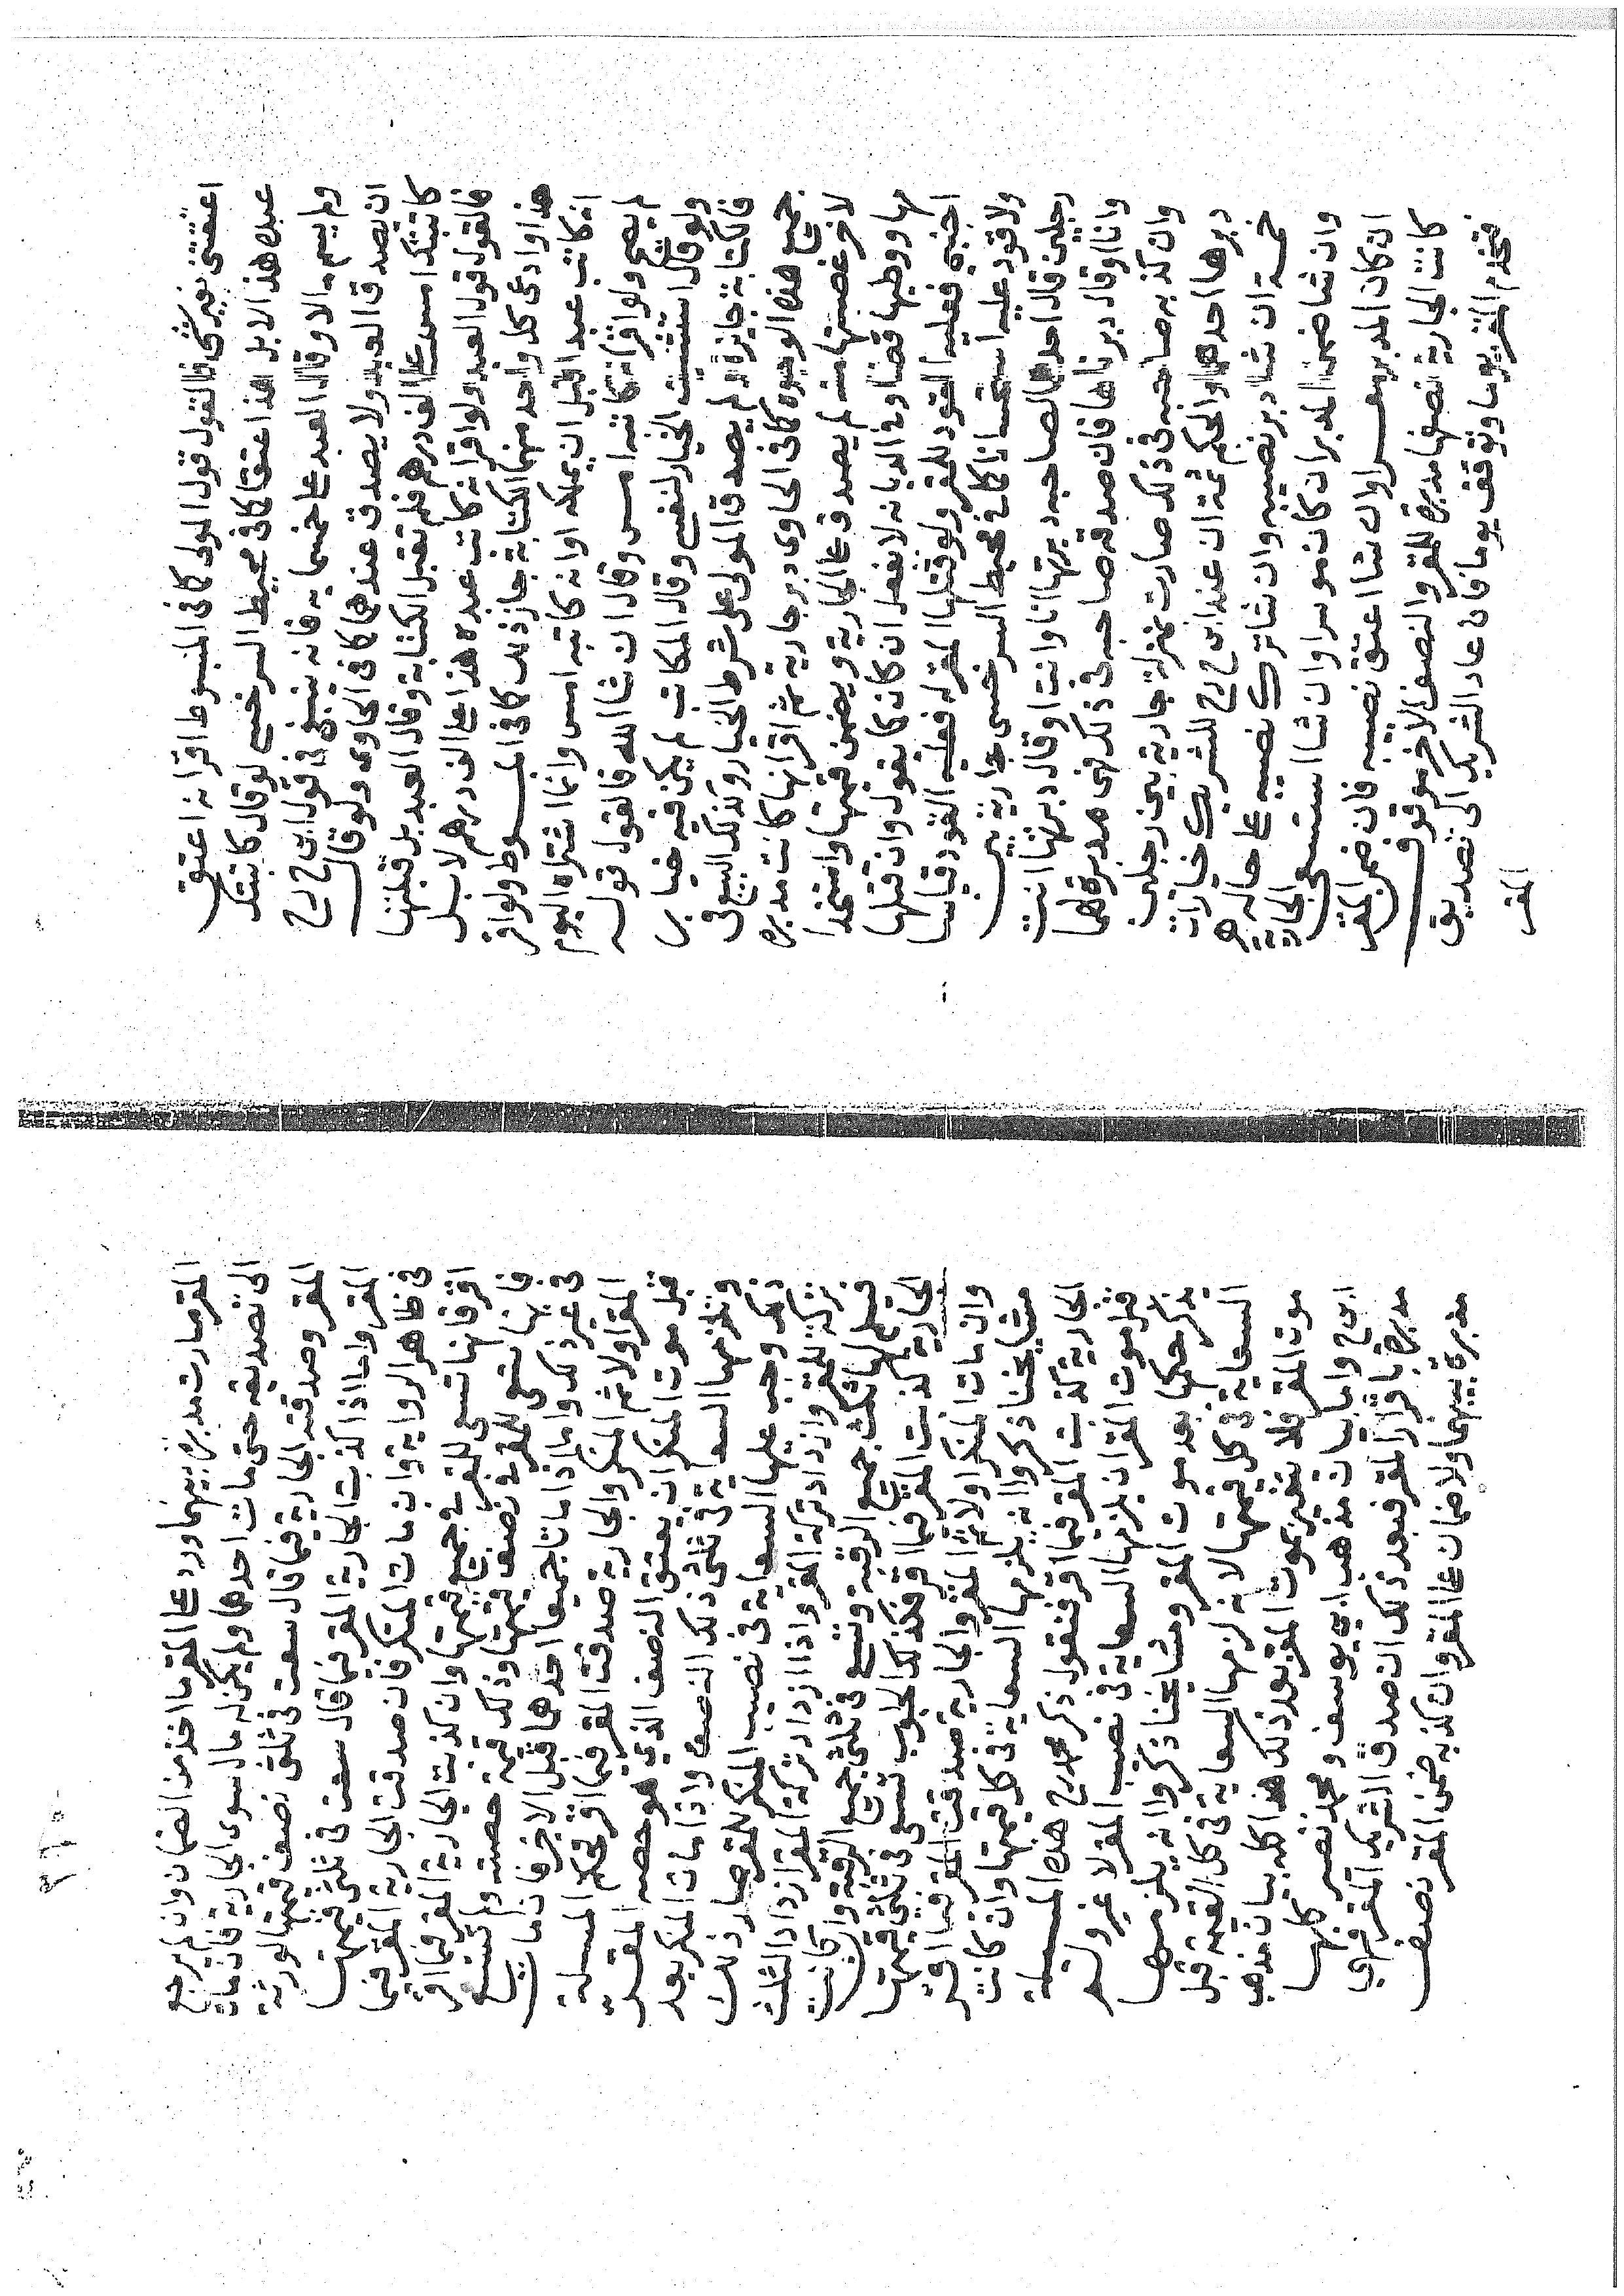 اعتقتني بغير شي فالقول قول المولى كما في المبسوط اقر انه اعتق
عبده هذا لا بل هذا عتقا كما في محيط السرخسي لو قال كاتبتك
ولم يسم مالا وقال العبد على خمسماية فانه ينبغي في قول ابي ح رح
ان يصدق العبد ولا يصدق عندهما كما في الحاوي ولو قال
كاتبتك امس على الف درهم فلم تقبل الكتابة وقال العبد بل قبلتها
فالقول قول العبد ولو اقر انه كاتب عبده هذا على الف درهم لا بل
هذا وادعى كل واحد منهما الكتابة جاز ذلك كما في المبسوط ولو اقر
انه كاتب عبدا قبل ان يملكه او انه كاتبه امس وانما اشتراه اليوم
لم يصح ولو اقر انه كاتبه امس وقال ان شا الله فالقول قوله
ولو قال استثنيت الخيار لنفسي وقال المكاتب لم يكن فيه خيار
فالكتابة جايزة ولم يصدق المولى على شرط الخيار وكذلك البيع في
جميع هذه الوجوه كما في الحاوي دبر جارية ثم اقر انها كانت مدبرة
لاخر غصبتها منه لم يصدق على الجارية ويضمن قيمتها واستخدا
مها ووطيها قضاء وفي الديانة لا يفعل ان كان كما يقول وان قتلها
اجنبي فعليه القود للمقر ولو قتلها المقر له فعليه القود قياسا
ولا قود عليه استحسانا كما في محيط السرخسي جارية بين
رجلين قال احدهما لصاحبه دبرتها انا وانت او قال دبرتها انت
وانا او قال دبرناها فان صدقه صاحبه في ذلك فهي مدبرة لهما
وان كذبه صاحبه في ذلك صارت بمنزلة جارية بين رجلين
دبرها احدهما والحكم ثمة ان عند ابي ح رح للشريك خيارات
خمسة ان شا دبر نصيبه وان شا ترك نصيبه على حاله
وان شا ضمن المدبر ان كان موسرا وان شا استسعى الجارية
ان كان المدبر معسرا وان شا اعتق نصيبه فان ضمن المقر
كانت الجارية نصفها مدبرة للمقر والنصف الاخر موقوف
فتخدم المقر يوما وتوقف يوما فان عاد الشريك الى تصديق
المقر
المقر صارت مدبرة بينهما ورد على المقر ما اخذ من الضمان وان لم يرجع
الى تصديقه حتى مات احدهما ولم يكن له مال سوى الجارية فان مات
المقر وصدقته الجارية فيما قال سعت في ثلثي نصف قيمتها لورثة
المقر واما اذا كذبت الجارية المقر فيما قال سعت في ثلثي قيمتها
في ظاهر الرواية وان مات المنكر فان صدقت الجارية المقر فيما
اقر فانها تسعى للمقر في جميع قيمتها وان كذبت الجارية المقر فيما اقر
فانها تسعى للمقر في نصف قيمتها وذلك قيمة حصته ولا تسعى
في غير ذلك واما اذا ماتا جميعا احدهما قبل الاخر فان مات
المقر اولا ثم المنكر والجارية صدقت المقر فيما اقر فحكم المسيلة
قبل موت المنكر ان يعتق النصف الذي هو حصة المقر
وتلزمها السعاية في ثلثي ذلك النصف واذا مات المنكر بعد
ذلك وجب عليها السعاية في نصيب المنكر للمقر صار ذلك
تركة للمقر وازداد تركة المقر واذا ازداد تركة المقر ازداد الثلث
فيسلم لها ثلث جميع الرقبة وتسعى في ثلثي جميع الرقبة وان كانت
الجارية كذبت المقر فيما اقر فكذلك الجواب تسعى في ثلثي قيمتها
وان مات المنكر اولا ثم المقر والجارية صدقت المقر فيما اقر
مشايخنا ذكروا انه يلزمها السعاية في كل قيمتها وان كانت
الجارية كذبت المقر فيما اقر فنقول ذكر محمد رح هذه المسيلة
قبل موت المقر ان يلزمها السعاية في نصيب المقر لا غير ولم
يذكر حكمها بعد موت المقر ومشايخنا ذكروا انه يلزمها
السعاية في كل قيمتها لانه لزمها السعاية في كل القيمة قبل
موت المقر فلا يتغير بموت المقر بعد ذلك هذا كله بيان مذهب
ابي ح واما بيان مذهب ابي يوسف ومحمد نصير كلها
مدبرة باقرار المقر فبعد ذلك ان صدق الشريك المقر فهي
مدبرة بينهما ولا ضمان على المقر وان كذبه ضمن المقر نصف